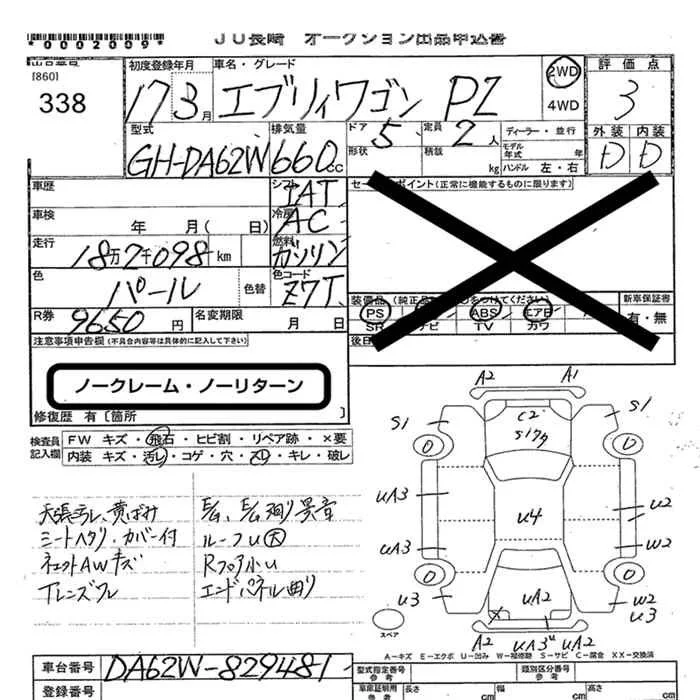 *0002009*
JU長崎 オークション出品申込書
[860]
338
初度登録年月
17 3月
車名・グレード
エブリィワゴン PZ
2WD
4WD
評価点
3
外装 内装
D D
型式
GH-DA62W
排気量
660cc
ドア 5
形状
定員 2人
積載 kg
ディーラー・並行
モデル年式 年
ハンドル 左・右
車歴
シフト
IAT
セールスポイント(正常に機能するものに限ります)
車検 年 月( 日)
冷房
AC
走行 18万2千098km
燃料
ガソリン
色 パール 色替
色コード
Z7T
装備品(純正品
をつけてください)
新車保証書
有・無
PS ABS エアB
SR ナビ TV カワ
R券 9650円
名変期限 月 日
後日
注意事項申告欄(不具合内容等は具体的に記入して下さい)
ノークレーム・ノーリターン
修復歴 有〔箇所 〕
検査員記入欄
FW キズ・飛石・ヒビ割・リペア跡・×要
内装 キズ・汚レ・コゲ・穴・スレ・キレ・破レ
天張ヨゴレ、黄ばみ
シートヘタリ・カバー付
ネェットAWキズ
Tレンズワレ
E/G、E/G廻り異音
ルーフU大
Rフロア小U
エンドパネル曲り
A2 A1
S1 C2 S1
S179
0 0
UA3 U2
U4
UA3 W2
0 0
U3 UA2 W2
X U3
A2 UA3 U UA2
スペア
A-キズ E-エクボ U-凹み W-補修跡 S-サビ C-腐食 XX-交換済
車台番号 DA62W-829481
登録番号
型式指定番号 類別区分番号
車庫証明用参考
長さ cm 幅 cm 高さ cm